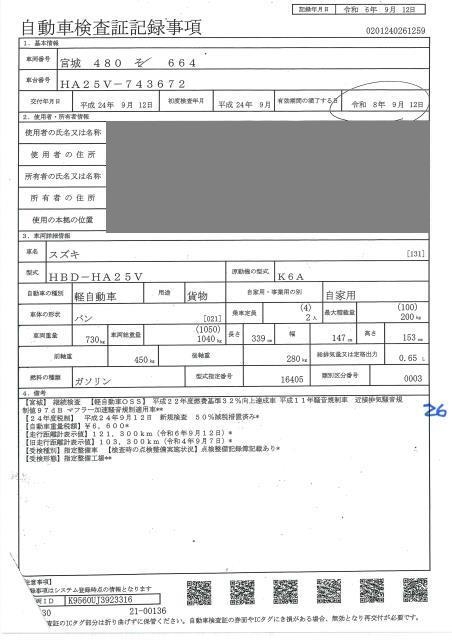 記録年月日 令和 6年 9月 12日
自動車検査証記録事項
0201240261259
1. 基本情報
車両番号 宮城 480 そ 664
車台番号 HA25V-743672
交付年月日 平成 24年 9月 12日 初度検査年月 平成 24年 9月 有効期間の満了する日 令和 8年 9月 12日
2. 使用者・所有者情報
使用者の氏名又は名称
使用者の住所
所有者の氏名又は名称
所有者の住所
使用の本拠の位置
3. 車両詳細情報
車名 スズキ [131]
型式 HBD-HA25V 原動機の型式 K6A
自動車の種別 軽自動車 用途 貨物 自家用・事業用の別 自家用
車体の形状 バン [021] 乗車定員 (4) 2人 最大積載量 (100) 200kg
車両重量 730kg 車両総重量 (1050) 1040kg 長さ 339cm 幅 147cm 高さ 153cm
前軸重 450kg 後軸重 280kg 総排気量又は定格出力 0.65 L
燃料の種類 ガソリン 型式指定番号 16405 類別区分番号 0003
4. 備考
【宮城】 継続検査 【軽自動車OSS】 平成22年度燃費基準32%向上達成車 平成11年騒音規制車 近接排気騒音規
制値97dB マフラー加速騒音規制適用車**
【24年度税制】 平成24年9月12日 新規検査 50%減税措置済み*
【自動車重量税額】¥6,600*
【走行距離計表示値】121,300km(令和6年9月12日)*
【旧走行距離計表示値】103,300km(令和4年9月7日)*
【受検種別】指定整備車 【検査時の点検整備実施状況】点検整備記録簿記載あり*
【受検形態】指定整備工場**
26
注意事項】
録事項はシステム登録時点の情報となります
両ID K9560UJ3923316
30 21-00136
査証のICタグ部分は折り曲げずに保管ください。自動車検査証の券面やICタグにき損がある場合、無効となり再交付が必要です。